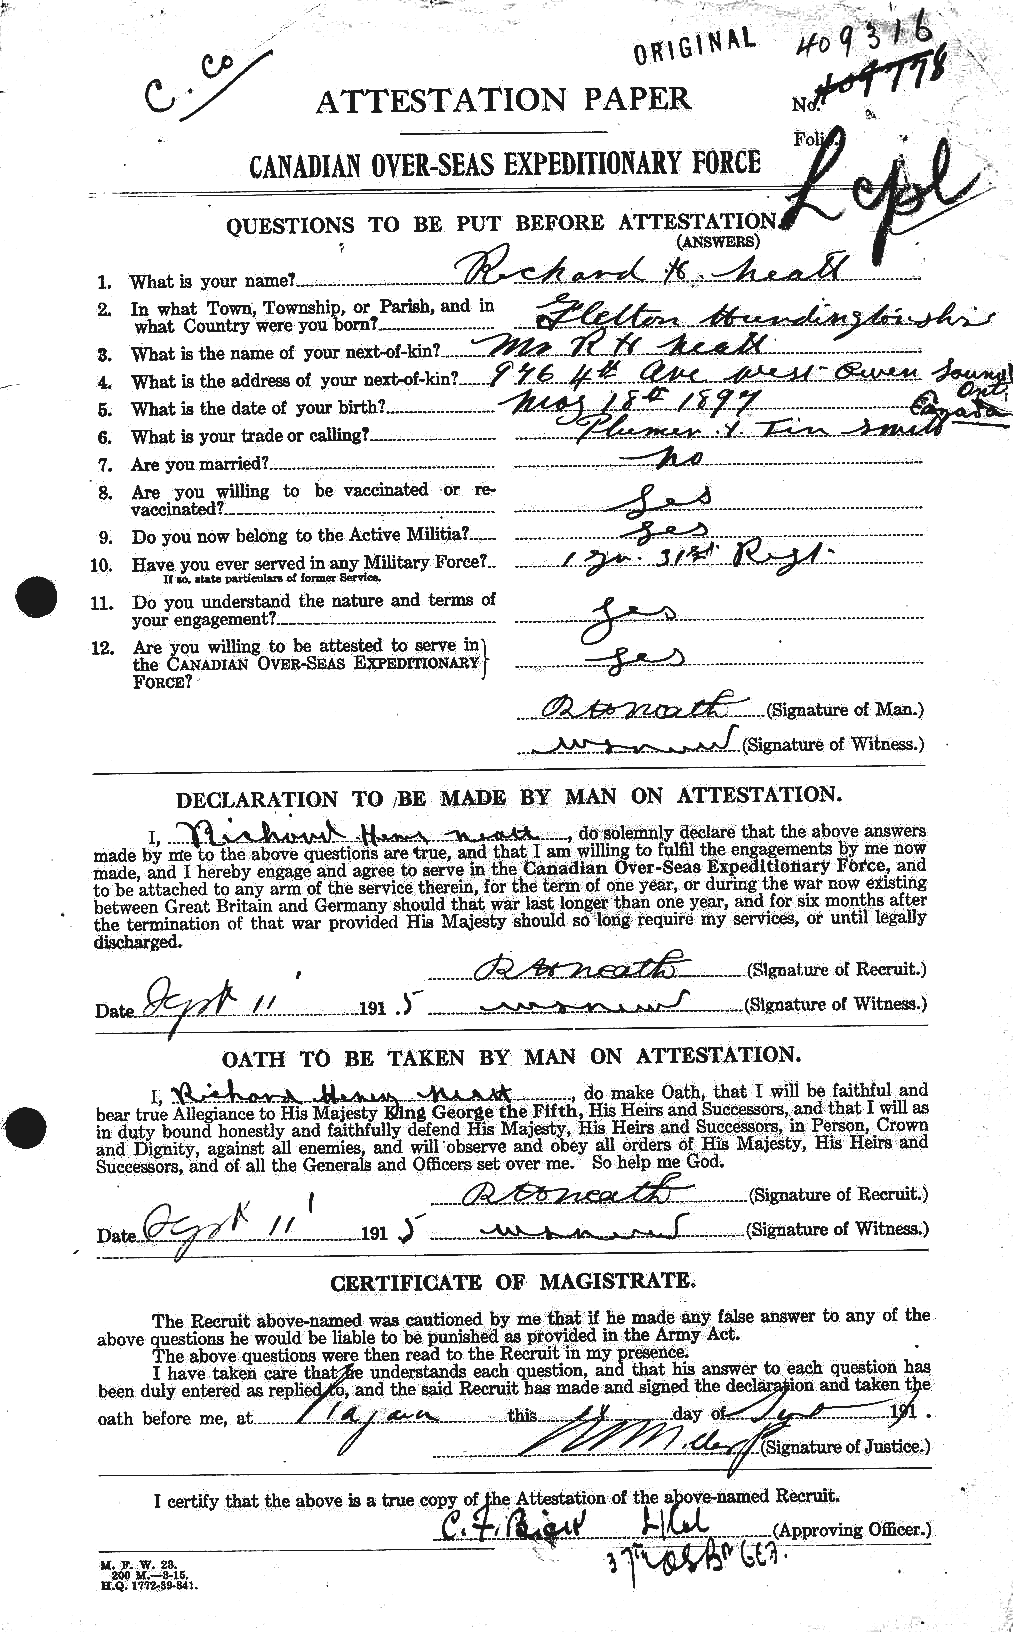 ORIGINAL
409316
C. Co
409778
ATTESTATION PAPER
No.
Folio.
CANADIAN OVER-SEAS EXPEDITIONARY FORCE
L cpl
QUESTIONS TO BE PUT BEFORE ATTESTATION.
(ANSWERS)
1. What is your name? Richard H. Neath
2. In what Town, Township, or Parish, and in
what Country were you born? Fletton Hundingtonshire
3. What is the name of your next-of-kin? Mr R H Neath
4. What is the address of your next-of-kin? 976 4th Ave West Owen Sound
Ont.
Canada
5. What is the date of your birth? 18th 1897
6. What is your trade or calling? Plumer & Tin Smith
7. Are you married? No
8. Are you willing to be vaccinated or re-
vaccinated? Yes
9. Do you now belong to the Active Militia? Yes
10. Have you ever served in any Military Force? 1 yr. 31st Regt.
If so, state particulars of former Service.
11. Do you understand the nature and terms of
your engagement? Yes
12. Are you willing to be attested to serve in
the CANADIAN OVER-SEAS EXPEDITIONARY
FORCE? Yes
R H Neath (Signature of Man.)
(Signature of Witness.)
DECLARATION TO BE MADE BY MAN ON ATTESTATION.
I, Richard Henry Neath, do solemnly declare that the above answers
made by me to the above questions are true, and that I am willing to fulfil the engagements by me now
made, and I hereby engage and agree to serve in the Canadian Over-Seas Expeditionary Force, and
to be attached to any arm of the service therein, for the term of one year, or during the war now existing
between Great Britain and Germany should that war last longer than one year, and for six months after
the termination of that war provided His Majesty should so long require my services, or until legally
discharged.
R H Neath (Signature of Recruit.)
Date Sept 11 1915 (Signature of Witness.)
OATH TO BE TAKEN BY MAN ON ATTESTATION.
I, Richard Henry Neath, do make Oath, that I will be faithful and
bear true Allegiance to His Majesty King George the Fifth, His Heirs and Successors, and that I will as
in duty bound honestly and faithfully defend His Majesty, His Heirs and Successors, in Person, Crown
and Dignity, against all enemies, and will observe and obey all orders of His Majesty, His Heirs and
Successors, and of all the Generals and Officers set over me. So help me God.
R H Neath (Signature of Recruit.)
Date Sept 11 1915 (Signature of Witness.)
CERTIFICATE OF MAGISTRATE.
The Recruit above-named was cautioned by me that if he made any false answer to any of the
above questions he would be liable to be punished as provided in the Army Act.
The above questions were then read to the Recruit in my presence.
I have taken care that he understands each question, and that his answer to each question has
been duly entered as replied to, and the said Recruit has made and signed the declaration and taken the
oath before me, at Niagara this day of Sept 191 .
(Signature of Justice.)
I certify that the above is a true copy of the Attestation of the above-named Recruit.
C. F. Bick Lt Col (Approving Officer.)
37th OS Bn CEF.
M. F. W. 23.
200 M.—8-15.
H.Q. 1772-39-841.